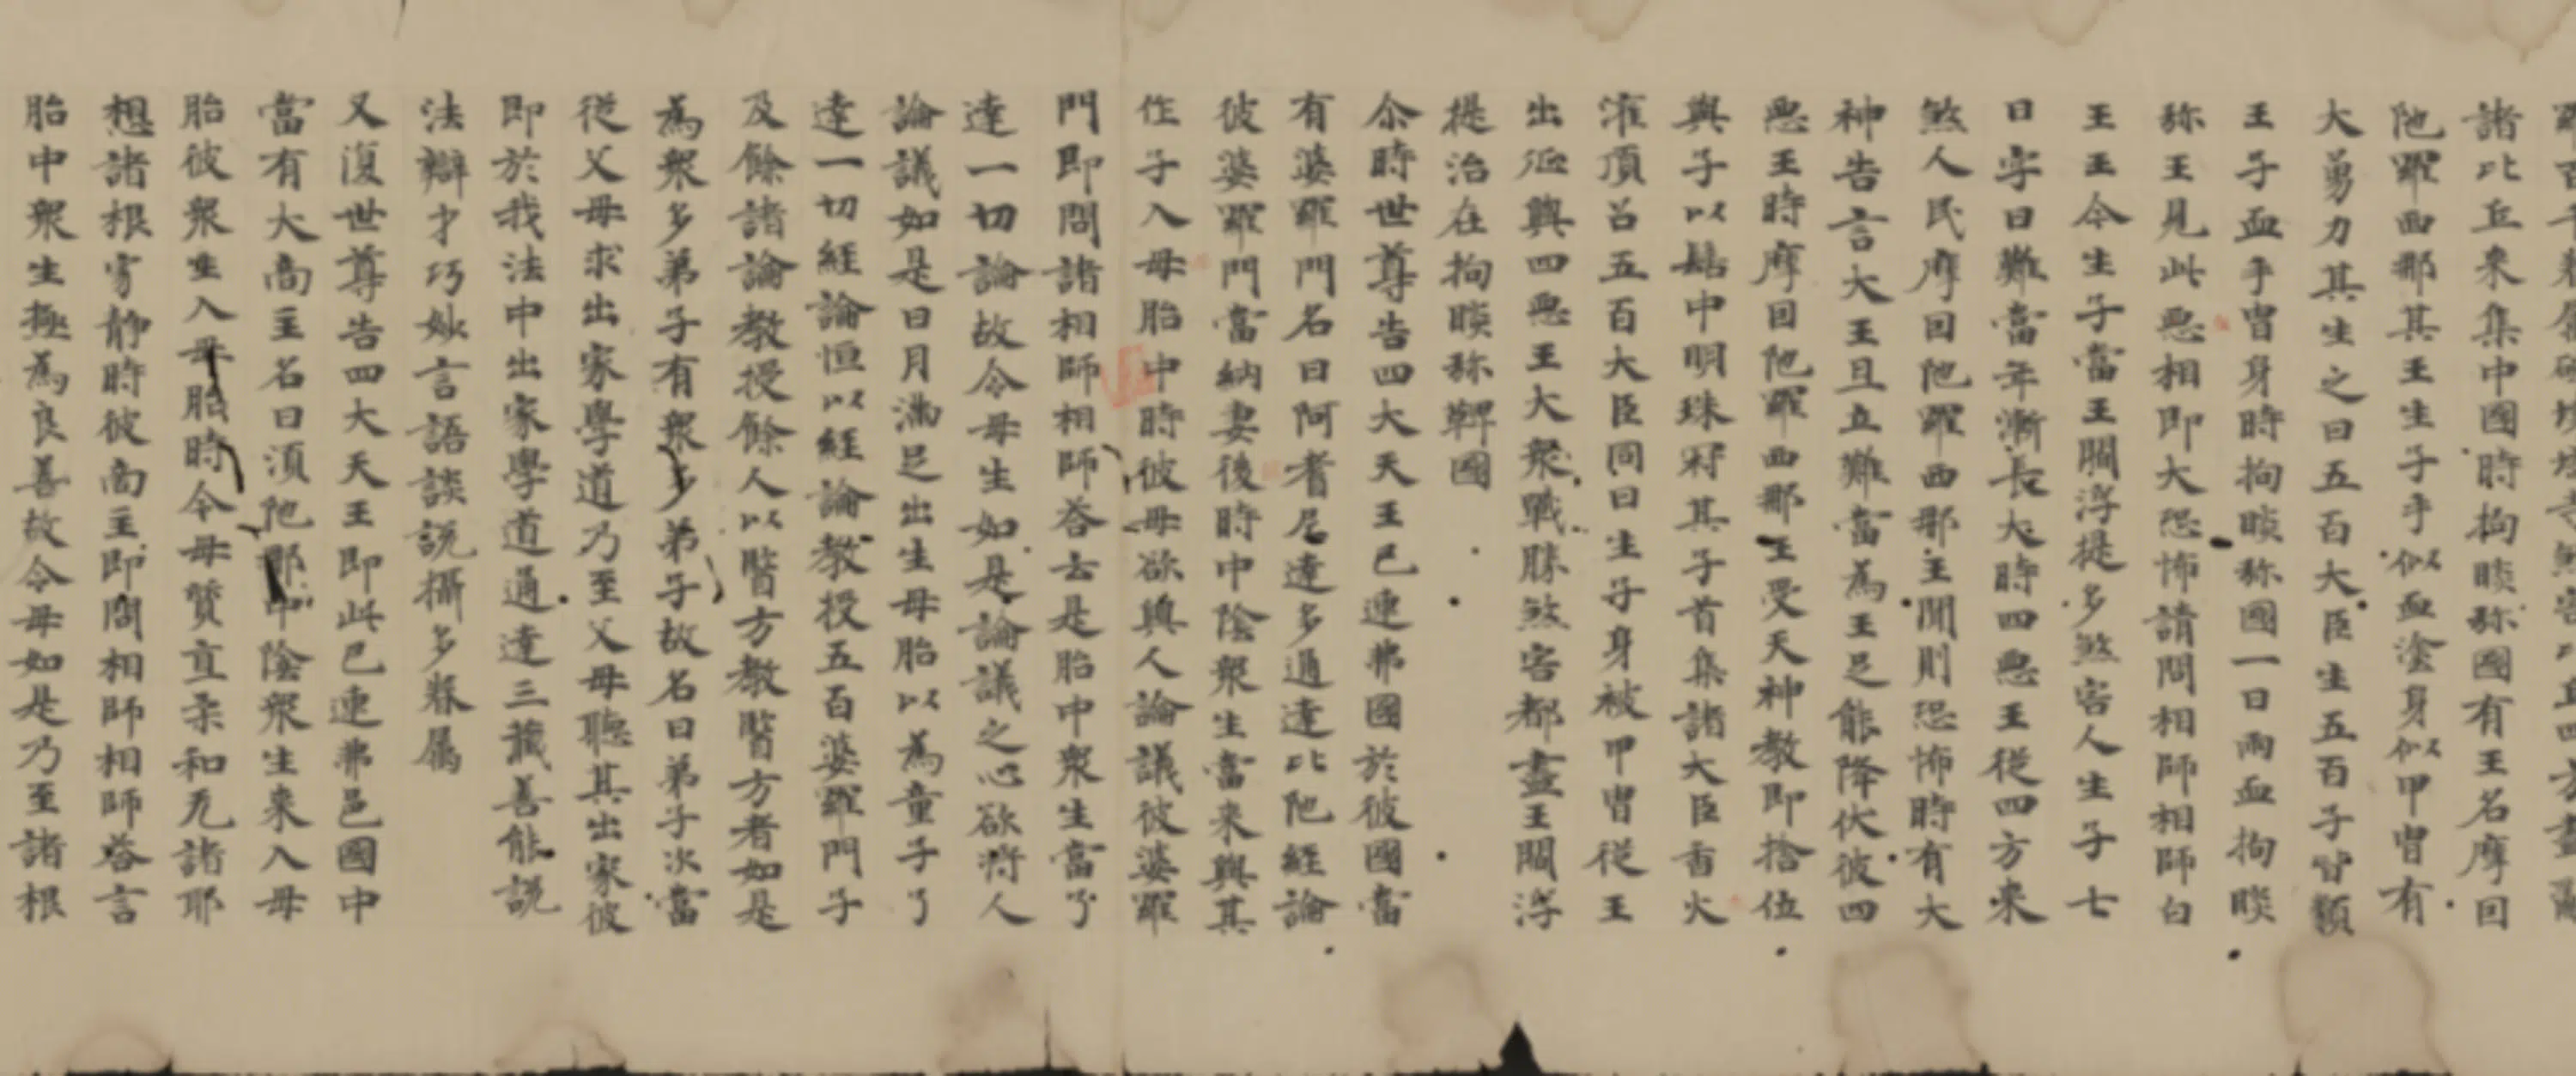 諸比丘来集中國時拘睒弥國有王名摩囙
陁羅西那其王生子手似血塗身似甲冑有
大勇力其生之日五百大臣生五百子皆類
王子血手冑身時拘睒弥國一日雨血拘睒
弥王見此悪相即大恐怖請問相師相師白
王王今生子當王閻浮提多煞害人生子七
日字曰難當年漸長大時四悪王從四方来
煞人民摩囙陁羅西那王聞則恐怖時有大
神告言大王且立難當為王足能降伏彼四
悪王時摩囙陁羅西那王受天神教即捨位
與子以髻中明珠冠其子首集諸大臣香火
潅頂召五百大臣同日生子身被甲冑從王
出征與四悪王大衆戰勝煞害都盡王閻浮
提治在拘睒弥鞞國
尒時世尊告四大天王巴連弗國於彼國當
有婆羅門名曰阿耆尼達多通達比陁經論
彼婆羅門當納妻後時中陰衆生當来與其
作子入母胎中時彼母欲與人論議彼婆羅
門即問諸相師相師荅云是胎中衆生當了
達一切論故令母生如是論議之心欲將人
論議如是日月滿足出生母胎以為童子了
達一切經論恒以經論教授五百婆羅門子
及餘諸論教授餘人以醫方教醫方者如是
為衆多弟子有衆多弟子故名曰弟子次當
從父母求出家學道乃至父母聽其出家彼
即於我法中出家學道通達三藏善能説
法辯才巧妙言語談説攝多眷屬
又復世尊告四大天王即此巴連弗邑國中
當有大商主名曰湏陁那中陰衆生来入母
胎彼衆生入母胎時令母質直柔和无諸耶
想諸根寂静時彼商主即問相師相師荅言
胎中衆生極為良善故令母如是乃至諸根